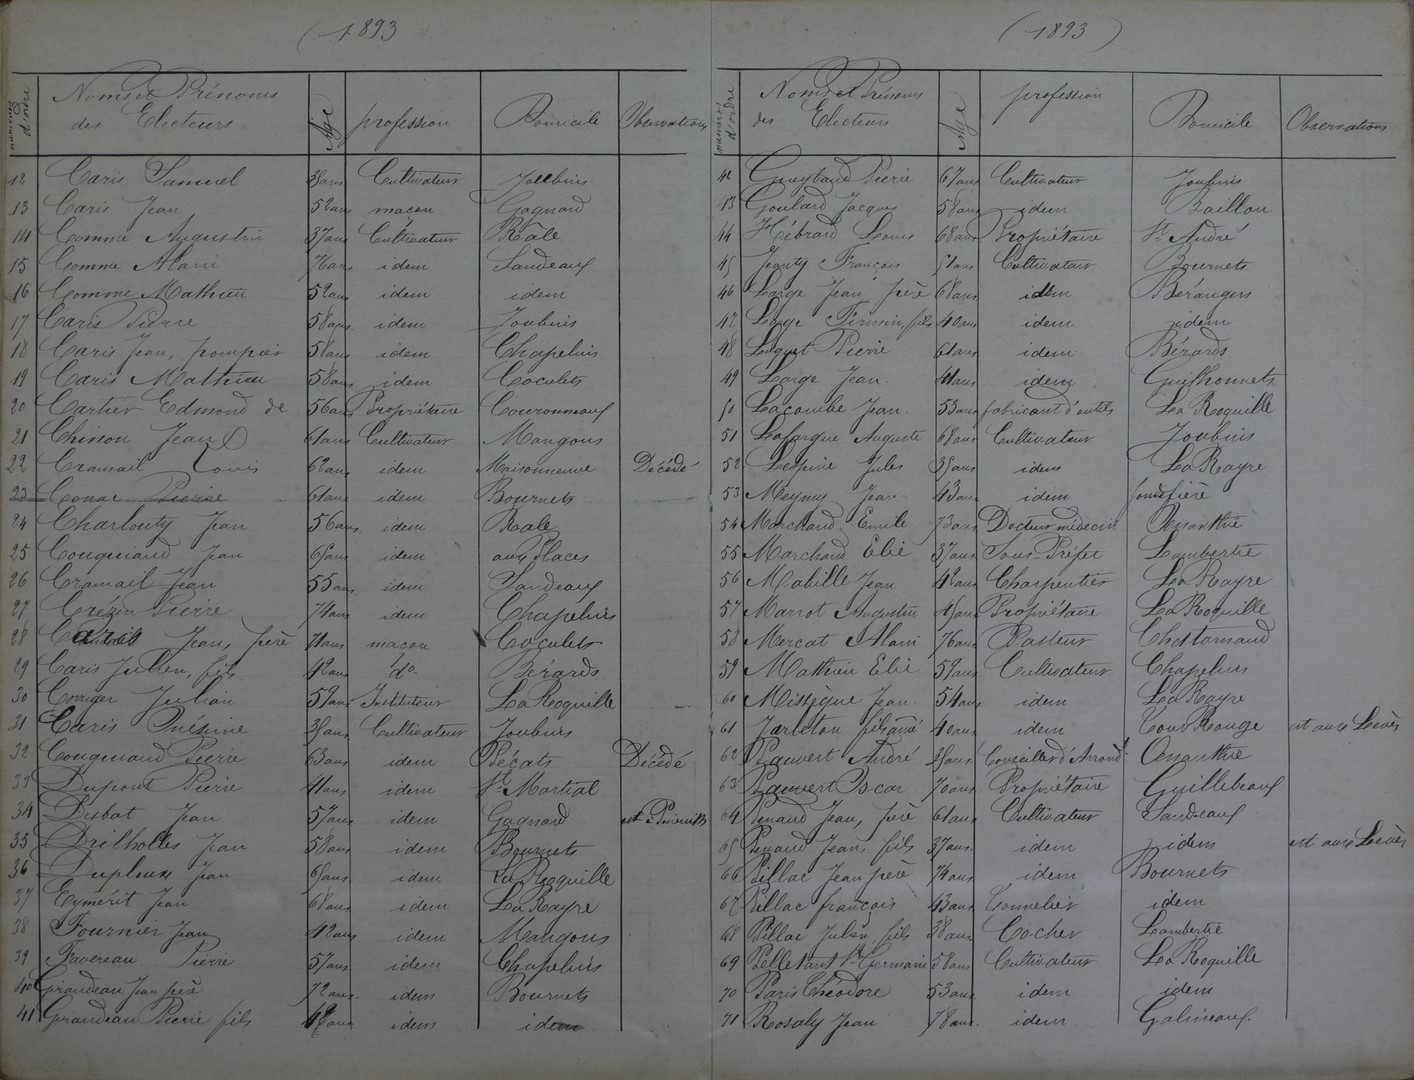 (1893)
numéros d'ordre | Noms et Prénoms des Electeurs | Age | profession | Domicile | Observations
12 Caris Samuel | Cultivateur | Joubinis
13 Caris Jean | 52 ans | maçon | Gagnard
14 Comme Augustin | 37 ans | Cultivateur | Réale
15 Comme Alain | 76 ans | idem | Sandeaux
16 Comme Mathieu | 52 ans | idem | idem
17 Caris Pierre | 58 ans | idem | Joubinis
18 Caris Jean, pompier | 58 ans | idem | Chapeluis
19 Caris Mathieu | 58 ans | idem | Coculets
20 Cartier Edmond de | 56 ans | Propriétaire | Couronneaux
21 Chinon Jean | 61 ans | Cultivateur | Mangons
22 Cramail Louis | 62 ans | idem | Maisonneuve | Décédé
23 Conac Pierre | 61 ans | idem | Bournets
24 Charlouty Jean | 56 ans | idem | Réale
25 Couquiaud Jean | idem | aux Places
26 Cramail Jean | 55 ans | idem | Sandeaux
27 Crézin Pierre | 74 ans | idem | Chapeluis
28 Caris Jean, père | 71 ans | maçon | Coculets
29 Caris Julien, fils | 42 ans | do | Bérards
30 Corriger Julien | 52 ans | Instituteur | La Roquille
31 Caris Onésime | Cultivateur | Joubinis
32 Couquiaud Pierre | 63 ans | idem | Pécats | Décédé
33 Dupont Pierre | 41 ans | idem | St Martial
34 Disbat Jean | 57 ans | idem | Gagnard | est
35 Drilholles Jean | 58 ans | idem | Bournets
36 Duploux Jean | idem | La Roquille
37 Eymérit Jean | 68 ans | idem | La Rayre
38 Fournier Jean | 42 ans | idem | Mangons
39 Favereau Pierre | 57 ans | idem | Chapeluis
40 Girandeau Jean père | 72 ans | idem | Bournets
41 Girandeau Pierre fils | idem | idem
(1893)
numéros d'ordre | Noms et Prénoms des Electeurs | Age | profession | Domicile | Observations
42 Gueybaud Pierre | 67 ans | Cultivateur | Joubinis
43 Goulard Jacques | 58 ans | idem | Baillon
44 Hébrard Louis | 68 ans | Propriétaire | St André
45 Janty François | 51 ans | Cultivateur | Bournets
46 Large Jean père | 68 ans | idem | Bérangers
47 Large Firmin, fils | 40 ans | idem | idem
48 Luquet Pierre | 61 ans | idem | Bérards
49 Large Jean | 41 ans | idem | Guilhonnets
50 Lacombe Jean | 53 ans | fabricant d'outils | La Roquille
51 Lafargue Auguste | 68 ans | Cultivateur | Joubinis
52 Lespine Jules | 35 ans | idem | La Rayre
53 Meymy Jean | 43 ans | idem
54 Marchand Emile | 73 ans | Docteur médecin | Œnanthie
55 Marchand Elie | 37 ans | Sous Préfet | Lambertie
56 Mabille Jean | 42 ans | Charpentier | La Rayre
57 Marrot Augustin | Propriétaire | La Roquille
58 Mercat Alain | 76 ans | Pasteur | Chatarnaud
59 Mathieu Elie | 52 ans | Cultivateur | Chapeluis
60 Missègue Jean | 54 ans | idem | La Rayre
61 Jarleton fils aîné | 40 ans | idem | Tour Rouge | est aux Lèves
62 Pauvert André | Conseiller d'Arrondt | Œnanthie
63 Pauvert Oscar | 70 ans | Propriétaire | Guillebeaux
64 Penaud Jean, père | 61 ans | Cultivateur | Sandeaux
65 Penaud Jean, fils | 37 ans | idem | idem | est aux Lèves
66 Pillac Jean père | 74 ans | idem | Bournets
67 Pillac françois | 43 ans | Tonnelier | idem
68 Pillac Julien fils | 38 ans | Cocher | Lambertie
69 Pelletant St Germain | 58 ans | Cultivateur | La Roquille
70 Paris Théodore | 53 ans | idem | idem
71 Rosaly Jean | 78 ans | idem | Galineaux